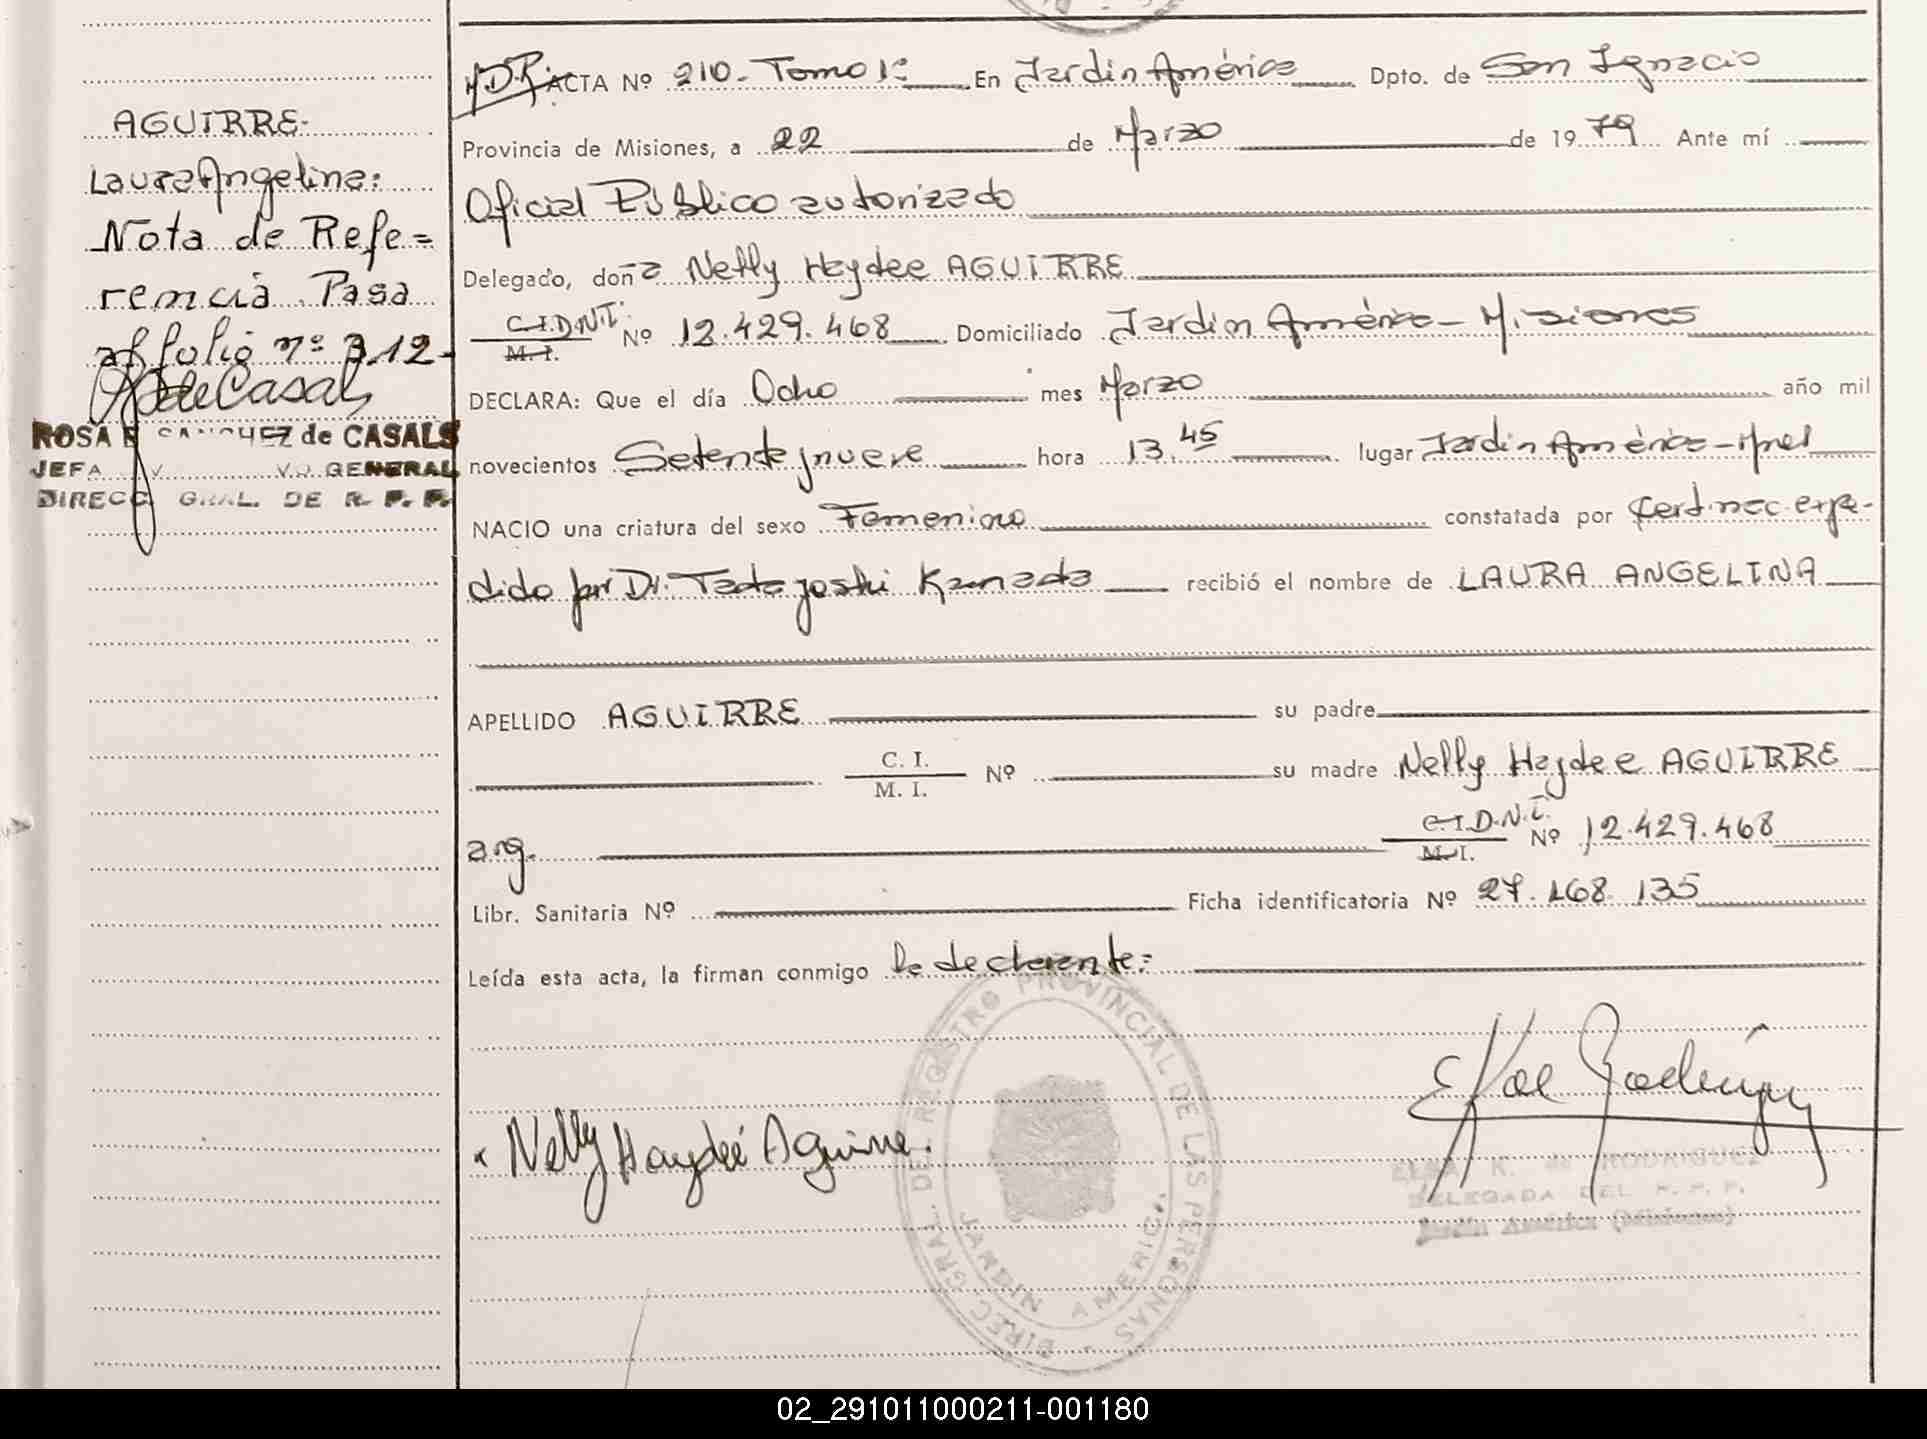 AGUIRRE-
Laura Angelina:
Nota de Refe=
rencia Pasa
al folio nº 312-
ROSA E. SANCHEZ de CASALS
JEFA GENERAL
DIRECC. GRAL. DE R. P. P.
ACTA Nº 210. Tomo 1º En Jardin América Dpto. de San Ignacio
Provincia de Misiones, a 22 de Marzo de 1979 Ante mí
Oficial Público autorizado
Delegado, doña Nelly Haydee AGUIRRE
C.I.D.N.I. M.I. Nº 12.429.468 Domiciliado Jardin América - Misiones
DECLARA: Que el día Ocho mes Marzo año mil
novecientos Setenta y nueve hora 13.45 lugar Jardin América - Mnes
NACIO una criatura del sexo Femenino constatada por Cert. nac. expe-
dido por Dr. Tadayoshi Kamada recibió el nombre de LAURA ANGELINA
APELLIDO AGUIRRE su padre
C. I. M. I. Nº su madre Nelly Haydee AGUIRRE
arg. C.I.D.N.I. M.I. Nº 12.429.468
Libr. Sanitaria Nº Ficha identificatoria Nº 27.168.135
Leída esta acta, la firman conmigo la declarante:
Nelly Haydeé Aguirre.
DIREC. GRAL. DEL REGISTRO PROVINCIAL DE LAS PERSONAS
JARDIN AMERICA
ELSA K. de RODRIGUEZ
DELEGADA DEL R. P. P.
Jardín América (Misiones)
02_291011000211-001180